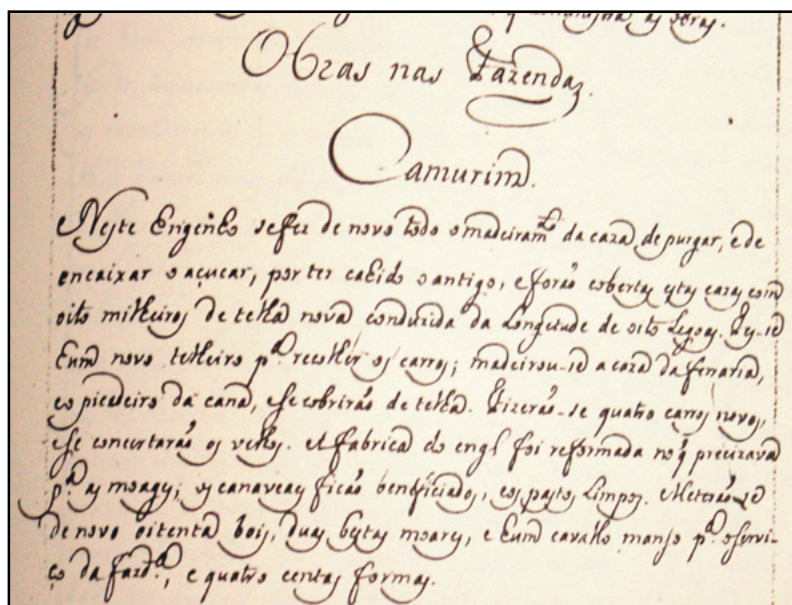 as obras.
Obras nas Fazendas.
Camurim.
Neste Engenho se fez de novo todo o madeiram.to da caza de purgar, e de
encaixar o açucar, por ter cahido o antigo, e forão cobertas estas cazas com
oito milheiros de telha nova conduzida da Longetude de oito Legoas. Fez-se
hum novo telheiro p.a recolher os carros; madeirou-se a caza da fenaria,
e o picadeiro da cana, e se cobrirão de telha. Fizerão-se quatro carros novos,
e se concertarão os velhos. A fabrica do eng.o foi reformada no q̃ precizava
p.a as moages; os canaveaes ficão beneficiados, e os pastos Limpos. Meterão-se
de novo oitenta bois, duas bestas moares, e hum cavallo manso p.a o servi-
ço da fazd.a, e quatro centas formas.